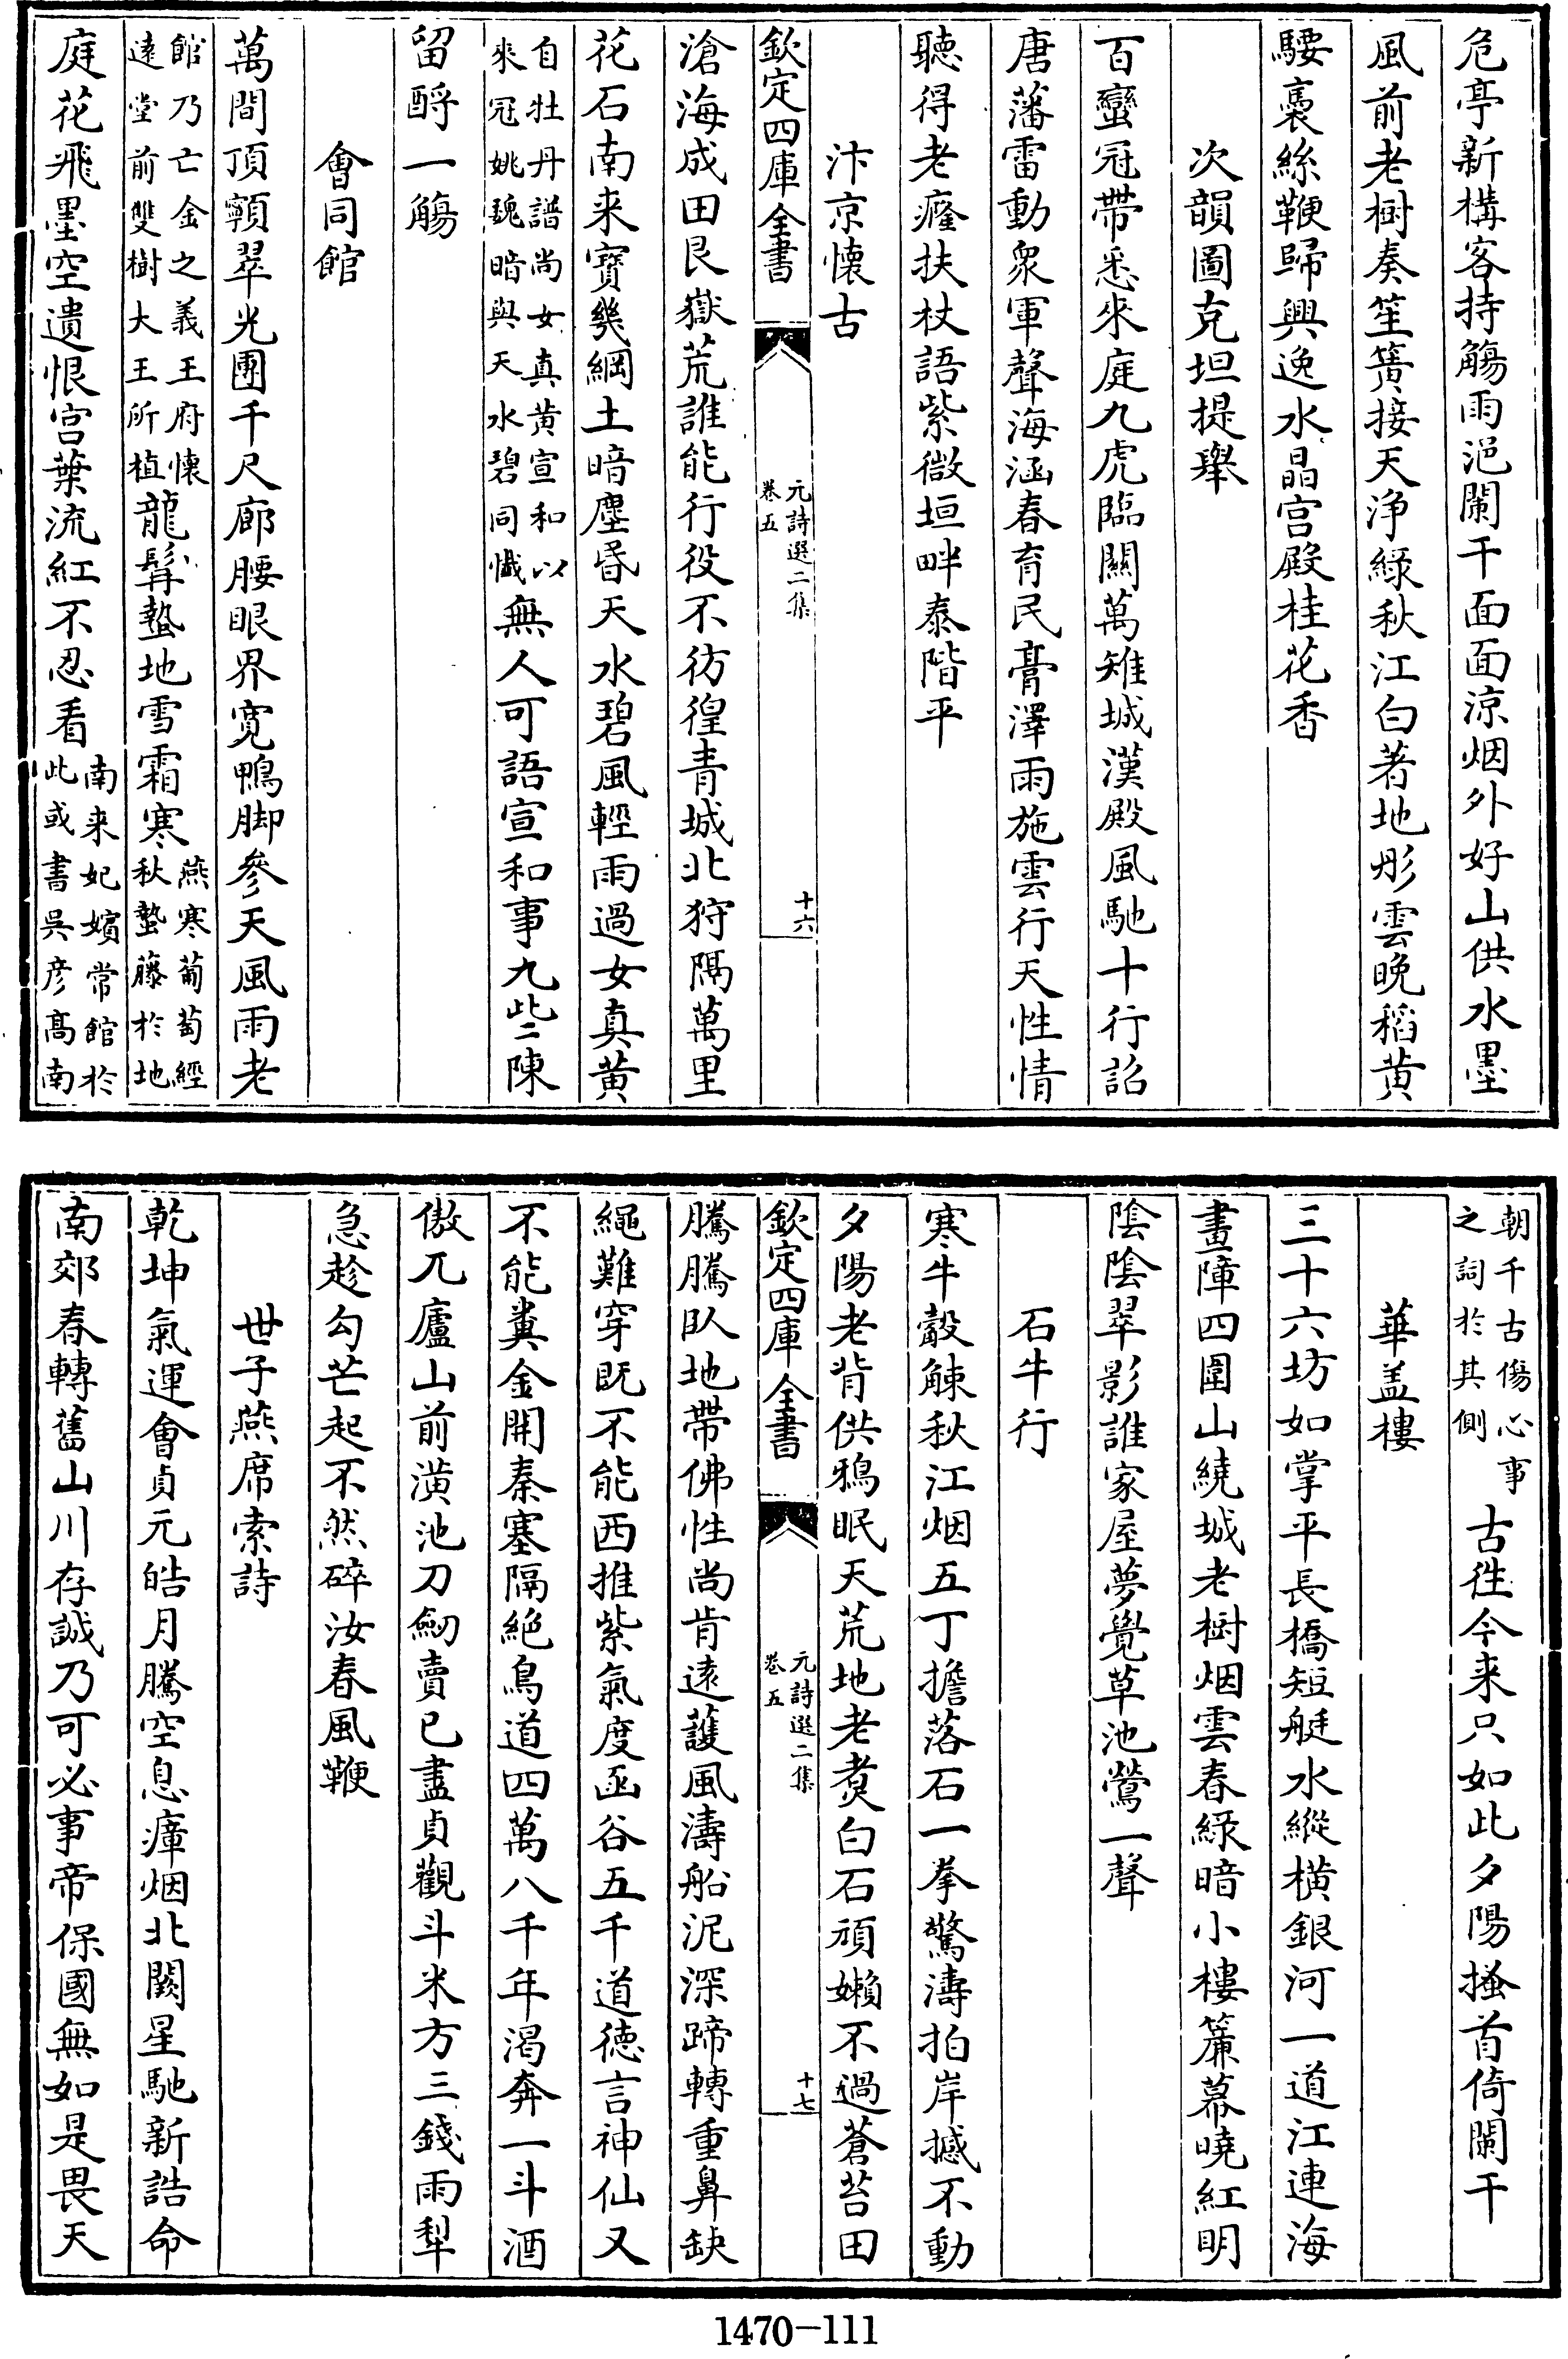 危亭新構客持觴雨浥闌干面面涼烟外好山供水墨
風前老樹奏笙簧接天淨綠秋江白著地彤雲晚稻黃
騕褭絲鞭歸興逸水晶宮殿桂花香
次韻圖克坦提舉
百蠻冠帶悉來庭九虎臨關萬雉城漢殿風馳十行詔
唐藩雷動衆軍聲海涵春育民膏澤雨施雲行天性情
聽得老癃扶杖語紫微垣畔泰階平
汴京懷古
欽定四庫全書
元詩選二集
卷五
十六
滄海成田艮嶽荒誰能行役不彷徨青城北狩隔萬里
花石南来寶幾綱土暗塵昏天水碧風輕雨過女真黃
自牡丹譜尚女真黃宣和以
來冠姚魏暗與天水碧同懺無人可語宣和事九些陳
留酹一觴
會同館
萬間頂顙翠光團千尺廊腰眼界寬鴨脚參天風雨老
館乃亡金之義王府懐
遠堂前雙樹大王所植龍髯蟄地雪霜寒燕寒葡萄經
秋蟄藤於地
庭花飛墨空遺恨宮葉流紅不忍看南来妃嬪常館於
此或書吳彦髙南
朝千古傷心事
之詞於其側古往今来只如此夕陽搔首倚闌干
華盖樓
三十六坊如掌平長橋短艇水縱橫銀河一道江連海
畫障四圍山繞城老樹烟雲春綠暗小樓簾幕曉紅明
陰陰翠影誰家屋夢覺草池鶯一聲
石牛行
寒牛觳觫秋江烟五丁擔落石一拳驚濤拍岸撼不動
夕陽老背供鴉眠天荒地老煑白石頑嬾不過蒼苔田
欽定四庫全書
元詩選二集
卷五
十七
騰騰臥地帶佛性尚肯遠護風濤船泥深蹄轉重鼻缺
繩難穿既不能西推紫氣度函谷五千道德言神仙又
不能糞金開秦塞隔絶鳥道四萬八千年渴奔一斗酒
傲兀廬山前潢池刀劒賣已盡貞觀斗米方三錢雨犁
急趁勾芒起不然碎汝春風鞭
世子燕席索詩
乾坤氣運會貞元皓月騰空息瘴烟北闕星馳新誥命
南郊春轉舊山川存誠乃可必事帝保國無如是畏天
1470-111